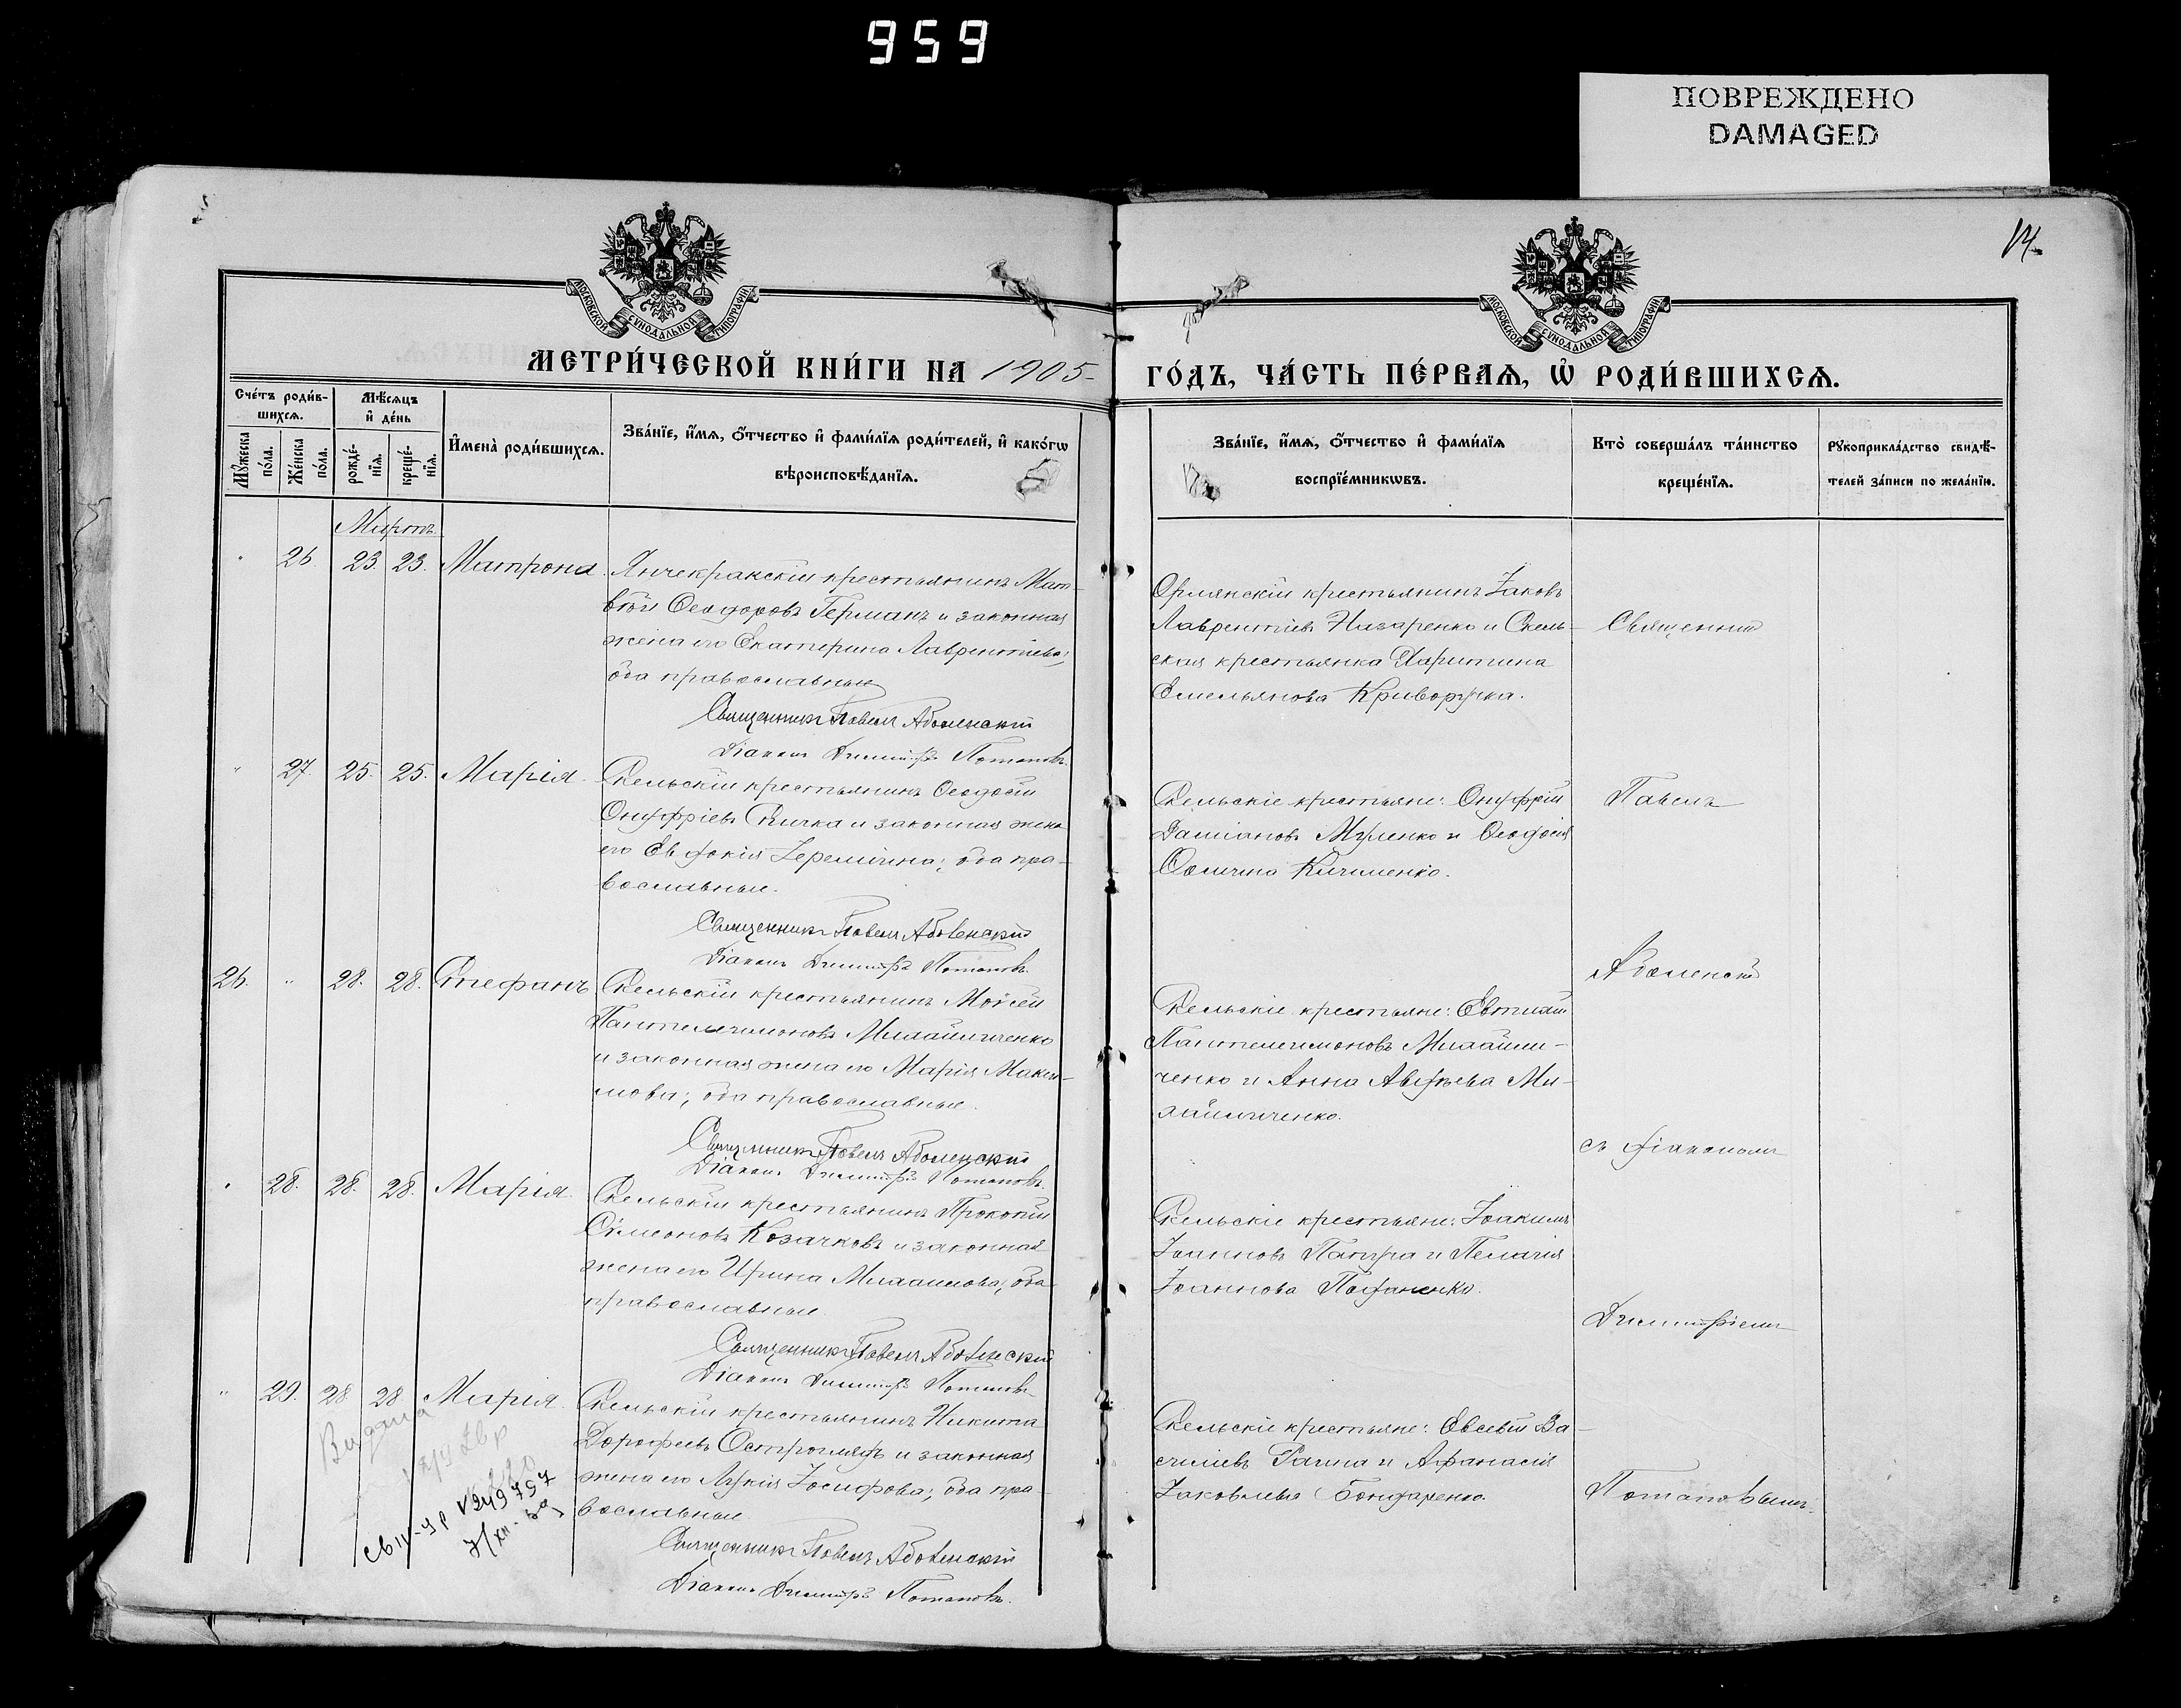 959
ПОВРЕЖДЕНО
DAMAGED
14.
МОСКОВСКОЙ СѴНОДАЛЬНОЙ ТИПОГРАФІИ
МОСКОВСКОЙ СѴНОДАЛЬНОЙ ТИПОГРАФІИ
МЕТРИ́ЧЕСКОЙ КНИ́ГИ НА 1905
ГО́ДЪ, ЧА́СТЬ ПЕ́РВАѦ, Ѽ РОДИ́ВШИХСѦ.
Сче́тъ роди́в-
шихсѧ.
Мꙋ́жеска по́ла.
Же́нска по́ла.
Мѣ́сѧцъ
и҆ де́нь
рожде́-
нїѧ.
креще́-
нїѧ.
И҆мена̀ роди́вшихсѧ.
Зва́нїе, и҆́мѧ, ѻ҆́тчество и҆ фами́лїѧ роди́телей, и҆ како́гѡ
вѣроисповѣ́данїѧ.
Зва́нїе, и҆́мѧ, ѻ҆́тчество и҆ фами́лїѧ
воспрїе́мникѡвъ.
Кто̀ соверша́лъ та́инство
креще́нїѧ.
Рꙋкоприкла́дство свидѣ́-
телей за́писи по жела́нїю.
Мартъ
26 23. 23. Матрона.
Янчекракскій крестьянинъ Мат-
вѣй Ѳеодоровъ Германъ и законная
жена его Екатерина Лаврентіева;
оба православные
Священникъ Павелъ Абаленскій
Діаконъ Димитрій Потаповъ.
Орлянскій крестьянинъ Іаковъ
Лаврентіевъ Назаренко и Скель-
ская крестьянка Харитина
Емельянова Криворучка.
Священникъ
27. 25. 25. Марія.
Скельскій крестьянинъ Ѳеодосій
Онуфріевъ Скичка и законная жена
его Евдокія Іереміина; оба пра-
вославные.
Священникъ Павелъ Абаленскій
Діаконъ Димитрій Потаповъ.
Скельскіе крестьяне: Онуфрій
Даміановъ и Ѳеодосія
Павелъ
26. " 28. 28. Стефанъ
Скельскій крестьянинъ Моѵсей
Пантелеимоновъ Михайличенко
и законная жена его Марія Макси-
мова; оба православные.
Священникъ Павелъ Абаленскій
Діаконъ Димитрій Потаповъ.
Скельскіе крестьяне: Евтихій
Пантелеимоновъ Михайли-
ченко и Анна Авдѣева Ми-
хайличенко.
Абаленскій
28. 28. 28. Марія.
Скельскій крестьянинъ Прокопій
Сѵмеоновъ Козачковъ и законная
жена его Ирина Михаилова; оба
православные
Священникъ Павелъ Абаленскій
Діаконъ Димитрій Потаповъ
Скельскіе крестьяне: Іоакимъ
Іоанновъ и Пелагія
Іоаннова
съ діакономъ
Димитріемъ
" 29. 28. 28. Марія.
Скельскій крестьянинъ Никита
Дороѳеевъ и законная
жена его Лукія Іосифова; оба пра-
вославные
Священникъ Павелъ Абаленскій
Діаконъ Димитрій Потаповъ.
Скельскіе крестьяне: Евсевій Ва-
силіевъ и Аѳанасія
Іаковлева Бондаренко.
Потаповымъ.
Видана